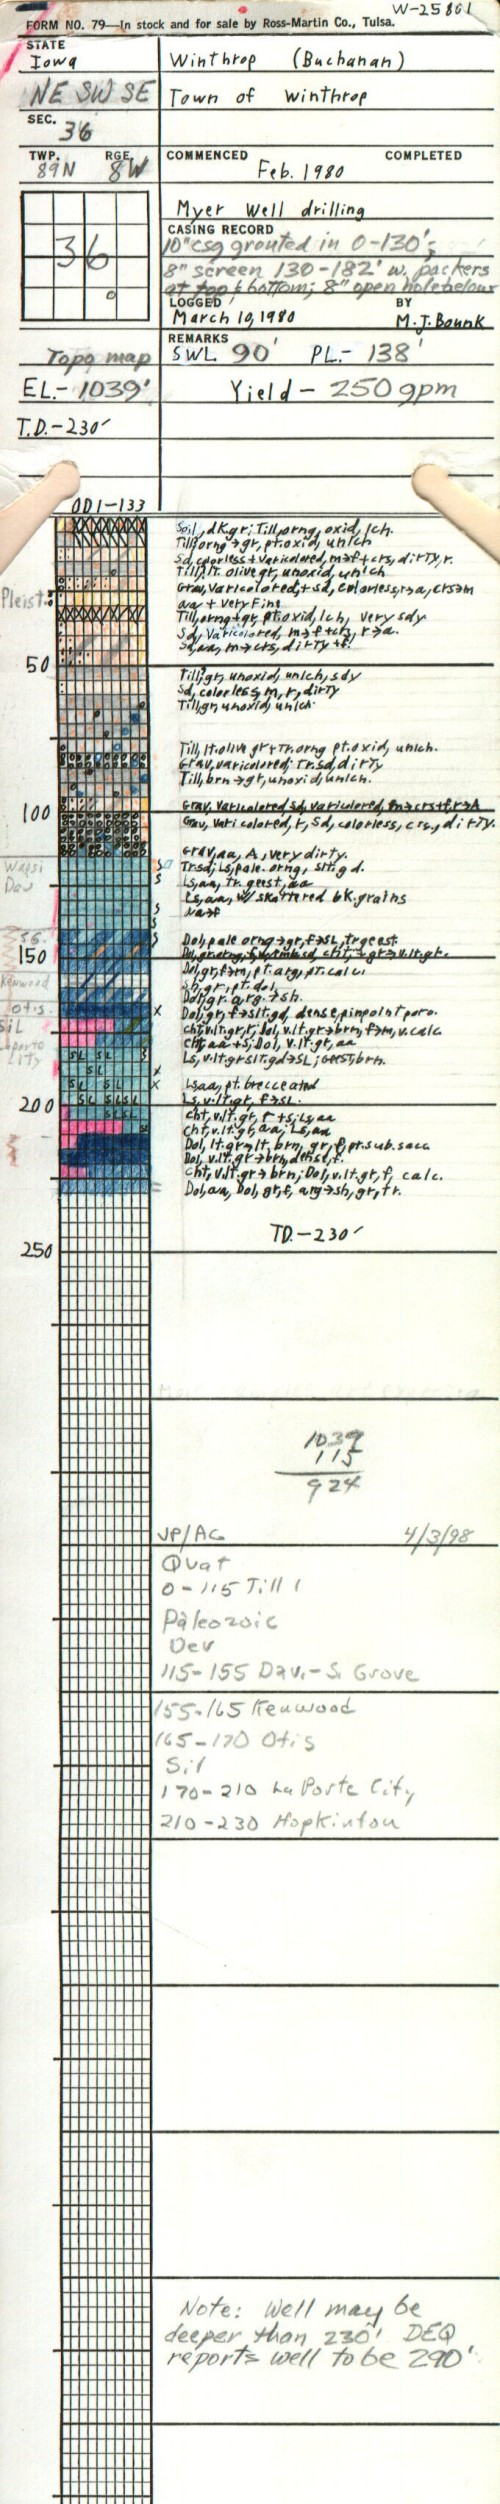 W-25801
FORM NO. 79—In stock and for sale by Ross-Martin Co., Tulsa.
STATE
Iowa
Winthrop (Buchanan)
NE SW SE
Town of Winthrop
SEC.
36
TWP. RGE.
89N 8W
COMMENCED COMPLETED
Feb. 1980
36
Myer Well drilling
CASING RECORD
10" csg grouted in 0-130';
8" screen 130-182' w. packers
at top & bottom; 8" open hole below
LOGGED BY
March 10, 1980 M.J. Bounk
REMARKS
Topo map
SWL 90' PL.- 138'
EL.- 1039'
Yield - 250 gpm
T.D.-230'
OD1-133
Soil, dk gr; Till, orng, oxid, lch.
Till, orng→gr, pt. oxid, unlch
Sd, colorless + varicolored, m→f+crs, dirty, r.
Till, lt. olive gr, unoxid, unlch
Grav, varicolored, + sd, colorless, r→a, crs→m
aa + very fine
Pleist.
Till, orng+gr, pt. oxid, lch, very sdy
Sd, varicolored, m→f+crs, r→a.
Sd, aa, m→crs, dirty+f.
50
Till, gr, unoxid, unlch, sdy
Sd, colorless, m, r, dirty
Till, gr, unoxid, unlch.
Till, lt. olive gr + Tr. orng pt. oxid, unlch.
Grav, varicolored; Tr. sd, dirty
Till, brn→gr, unoxid, unlch.
100
Grav, varicolored, Sd, varicolored, m→crs+f, r→A
Grav, varicolored, r, Sd, colorless, crs, dirty.
Grav, aa, A, very dirty.
Wapsi
Dav
Tr. sd; Ls, pale. orng, slt. gd.
Ls, aa, Tr. geest, aa
Ls, aa, w/ skattered bk. grains
aa→f
S.G.
Dol, pale orng→gr, f→SL, tr. geest
150
Dol, gr, f→m, pt. arg, pt. calc
Kenwood
Sh, gr, pt. dol
Dol, gr. arg→sh.
Otis
Dol, gr, f→slt. gd, dense, pinpoint poro.
SiL
Laporte
City
Cht, v. lt. gr, r, Dol, v. lt. gr→brn, f→m, v. calc
Cht, aa+s; Dol, v. lt. gr, aa
Ls, v. lt. gr slt. gd→SL; Geest, brn.
Ls, aa, pt. brecceated
Ls, v. lt. gr, f→SL.
200
Cht, v. lt. gr, r+s; Ls, aa
Cht, v. lt. gr, aa; Ls, aa
Dol, lt. gr→lt, brn, gr, f, pt. sub. sacc
Dol, v. lt. gr→brn, dense, f.
Cht, v. lt. gr→brn; Dol, v. lt. gr, f, calc.
Dol, aa, Dol, gr, f, arg→sh, gr, tr.
TD.-230'
250
1039
115
924
JP/AG 4/3/98
Quat
0-115 Till
Paleozoic
Dev
115-155 Dav.-S. Grove
155-165 Kenwood
165-170 Otis
Sil
170-210 La Porte City
210-230 Hopkinton
Note: Well may be
deeper than 230' DEQ
reports well to be 290'